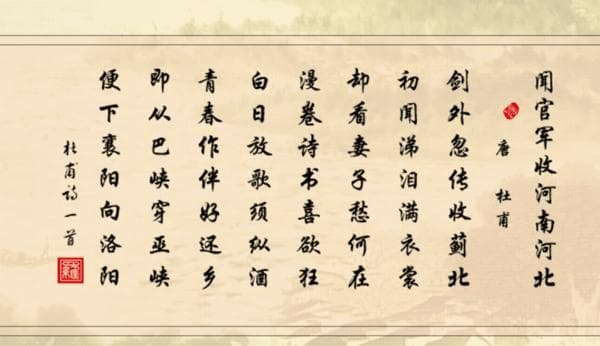 闻官军收河南河北
唐 杜甫
剑外忽传收蓟北
初闻涕泪满衣裳
却看妻子愁何在
漫卷诗书喜欲狂
白日放歌须纵酒
青春作伴好还乡
即从巴峡穿巫峡
便下襄阳向洛阳
杜甫诗一首